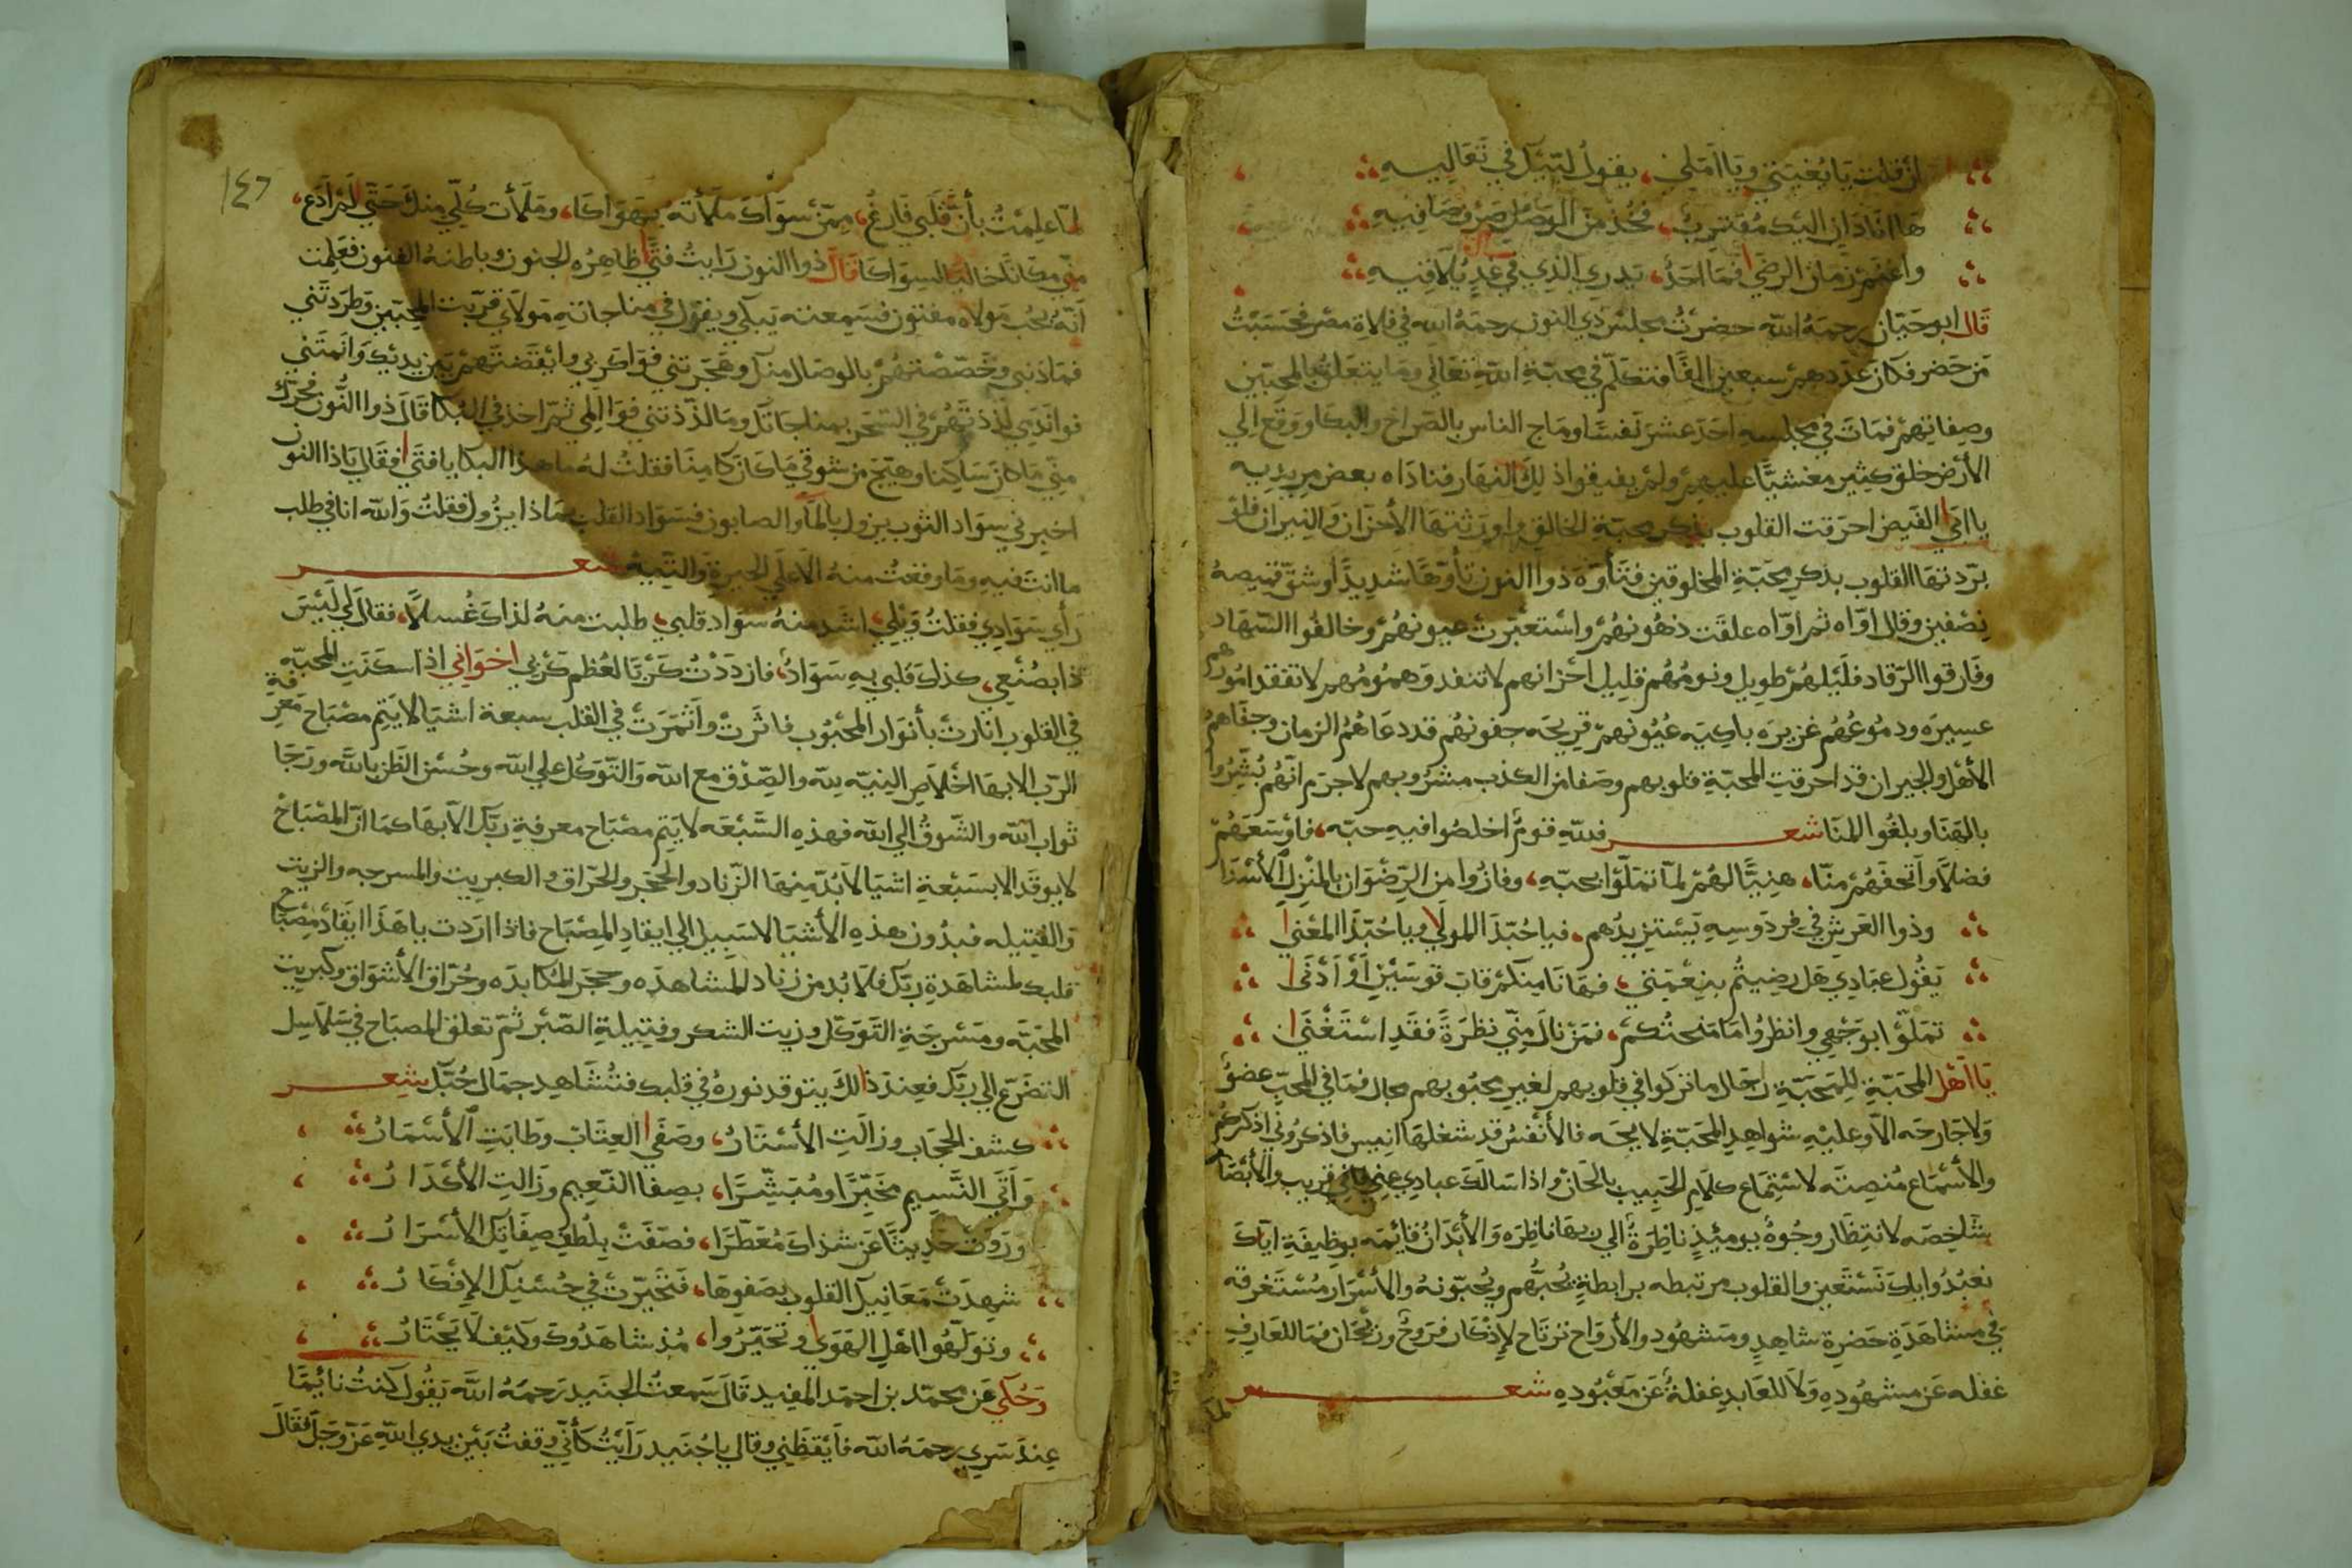 ان قلت يا بغيتي ويا املي، يقول لبيك في تعاليه
ها انا دان اليك مقترب، فخذ من الوصل صرف صافيه
واغتنم زمان الرضى فما احد، يدري الذي في غد يلاقيه
قال ابو حيان رحمه الله حضرت مجلس ذي النون رحمه الله في فلاة مصر فحسبت
من حضر فكان عددهم سبعين الفا فتكلم في محبة الله تعالى وما يتعلق بالمحبين
وصفاتهم فمات في مجلسه احد عشر نفسا وماج الناس بالصراخ والبكا ووقع الي
الأرض خلق كثير مغشيا عليهم ولم يفيقوا ذلك النهار فناداه بعض مريديه
يا ابي الفيض احرقت القلوب بذكر محبة الخالق واورثتها الأحزان والنيران فلو
بردتها القلوب بذكر محبة المخلوقين فتأوه ذوا النون تأوها شديدا وشق قميصه
نصفين وقال اواه ثم اواه علقت ذهونهم واستعبرت عيونهم وخالفوا السهاد
وفارقوا الرقاد فليلهم طويل ونومهم قليل احزانهم لا تنفد وهمومهم لا تفقد امورهم
عسيره ودموعهم غزيره باكيه عيونهم قريحه جفونهم قد دعاهم الزمان وجفاهم
الأهل والجيران قد احرقت المحبة قلوبهم وصفا من الكذب مشروبهم لا جرم انهم بشروا
بالهنا وبلغوا المنا شعر فلله قوم اخلصوا فيه حبه، فاوسعهم
فضلا واتحفهم منا، هنيا لهم لما تملوا بحبه، وفازوا من الرضوان بالمنزل الأسنا
وذوا العرش في فردوسه يستزيدهم، فيا حبذا المولى ويا حبذا المغنى
يقول عبادي هل رضيتم بنعمتي، فها انا منكم قاب قوسين او ادنى
تملوا بوجهي وانظروا ما منحتكم، فمن نال مني نظرة فقد استغنى
يا اهل المحبة للمحبة رجال ما تركوا في قلوبهم لغير محبوبهم مجال فما في المحب عضو
ولا جارحه الا وعليه شواهد المحبة لايحه فالأنفس قد شغلها انيس فاذكروني اذكركم
والأسماع منصته لاستماع كلام الحبيب بالحان واذا سالك عبادي عني فاني قريب والأبصار
شاخصه لانتظار وجوه يوميذ ناظرة الى ربها ناظره والأبدان قائمه بوظيفة اياك
نعبد واياك نستعين والقلوب مرتبطه برابطة يحبهم ويحبونه والأسرار مستغرقه
في مشاهدة حضرة شاهد ومشهود والأرواح ترتاح لإذكار فروح وريحان فما للعارف
غفله عن مشهوده ولا للعابد غفلة عن معبوده شعر
لما
١٤٦
لما علمت بأن قلبي فارغ، ممن سواك ملأته بهواكا، وملأت كلي منك حتى لم ادع،
مني مكانا خاليا لسواكا قال ذوا النون رايت فتى ظاهره الجنون وباطنه الفنون فعلمت
أنه بحب مولاه مفتون فسمعته يبكي ويقول في مناجاته مولاي قربت المحبين وطردتني
فما ذنبي وخصصتهم بالوصال منك وهجرتني فواكربي وايقضتهم بين يديك وانمتني
فواندمي لذذتهم في السحر بمناجاتك وما لذذتني فوا المي ثم اخذ في البكا قال ذوا النون فحرك
مني ما كان ساكنا وهيج من شوقي ما كان كامنا فقلت له ما هذا البكا يا فتى فقال يا ذا النون
اخبرني سواد الثوب يزول بالماء والصابون فسواد القلب بماذا يزول فقلت والله انا في طلب
ما انت فيه وما وقعت منه الا على الحيرة والتيه شعر
رأى سوادي فقلت ويلي، اشد منه سواد قلبي، طلبت منه لذاك غسلا، فقال لي ليس
ذا بصنعي، كذاك قلبي به سواد، فازددت كربا لعظم كربي اخواني اذا سكنت المحبه
في القلوب انارت بأنوار المحبوب فاثرت واثمرت في القلب سبعة اشيا لا يتم مصباح معرفة
الرب الا بها اخلاص النية لله والصدق مع الله والتوكل على الله وحسن الظن بالله ورجا
ثواب الله والشوق الي الله فهذه السبعه لا يتم مصباح معرفة ربك الا بها كما ان المصباح
لا يوقد الا بسبعة اشيا لا بد منها الزناد والحجر والحراق والكبريت والمسرجه والزيت
والفتيله فبدون هذه الأشيا لا سبيل الي ايقاد المصباح فاذا اردت يا هذا ايقاد مصباح
قلبك لمشاهدة ربك فلا بد من زناد المشاهده وحجر المكابده وحراق الأشواق وكبريت
المحبه ومسرجة التوكل وزيت الشكر وفتيلة الصبر ثم تعلق المصباح في سلاسل
التضرع الي ربك فعند ذالك يتوقد نوره في قلبك فتشاهد جمال حبك شعر
كشف الحجاب وزالت الأستار، وصفى العتاب وطابت الأسمار
وأتى النسيم مخبرا ومبشرا، بصفا النعيم وزالت الأكدار
وروت حديثا عن شذاك معطرا، فصفت بلطف صفاتك الأسرار
شهدت معانيك القلوب بصفوها، فتحيرت في حسنك الإفكار
وتولهوا اهل الهوى وتحيروا، مذ شاهدوك وكيف لا يحتار
وحكي عن محمد بن احمد المفيد قال سمعت الجنيد رحمه الله يقول كنت نائما
عند سري رحمه الله فأيقظني وقال يا جنيد رأيت كأني وقفت بين يدي الله عز وجل فقال